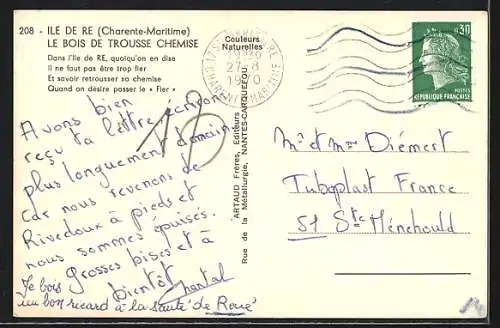 208 - ILE DE RE (Charente-Maritime)
LE BOIS DE TROUSSE CHEMISE
Dans l'Ile de RE, quoiqu'on en dise
Il ne faut pas être trop fier
Et savoir retrousser sa chemise
Quand on désire passer le « Fier »
Couleurs
Naturelles
27-8
1970
CHARENTE MARITIME
0,30
POSTES
REPUBLIQUE FRANÇAISE
Avons bien
reçu ta lettre, écrirons
plus longuement demain
car nous revenons de
Rivedoux à pieds et
nous sommes épuisés.
Grosses bises et à
bientôt Chantal
Je bois
un bon ricard à la santé de René
18
ARTAUD Frères, Editeurs
Rue de la Métallurgie, NANTES-CARQUEFOU
Mr et Mme Diémert
Tuboplast France
51 Ste Ménéhould